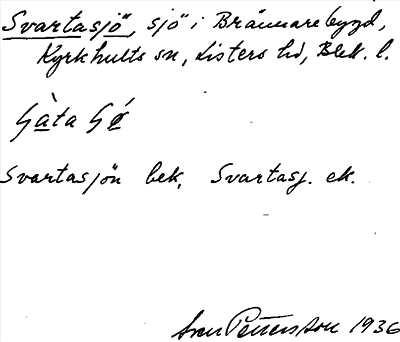 Svartasjö, sjö i Brännarebygd,
Kyrkhults sn, Listers hd, Blek. l.
Svartasjön bek. Svartasj. ek.
Sven Pettersson 1936